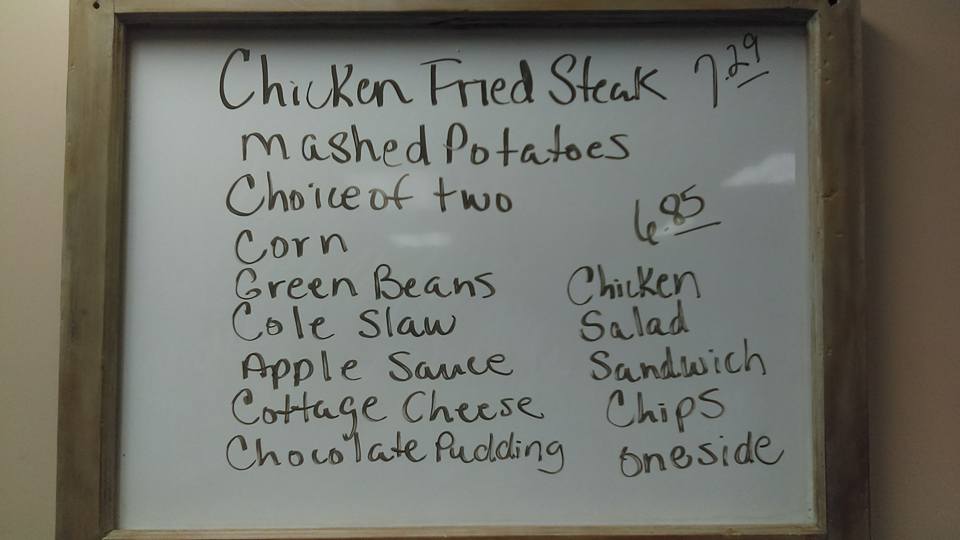 Chicken Fried Steak 7.29
mashed Potatoes
Choice of two
Corn
Green Beans
Cole Slaw
Apple Sauce
Cottage Cheese
Chocolate Pudding
6.85
Chicken
Salad
Sandwich
Chips
one side